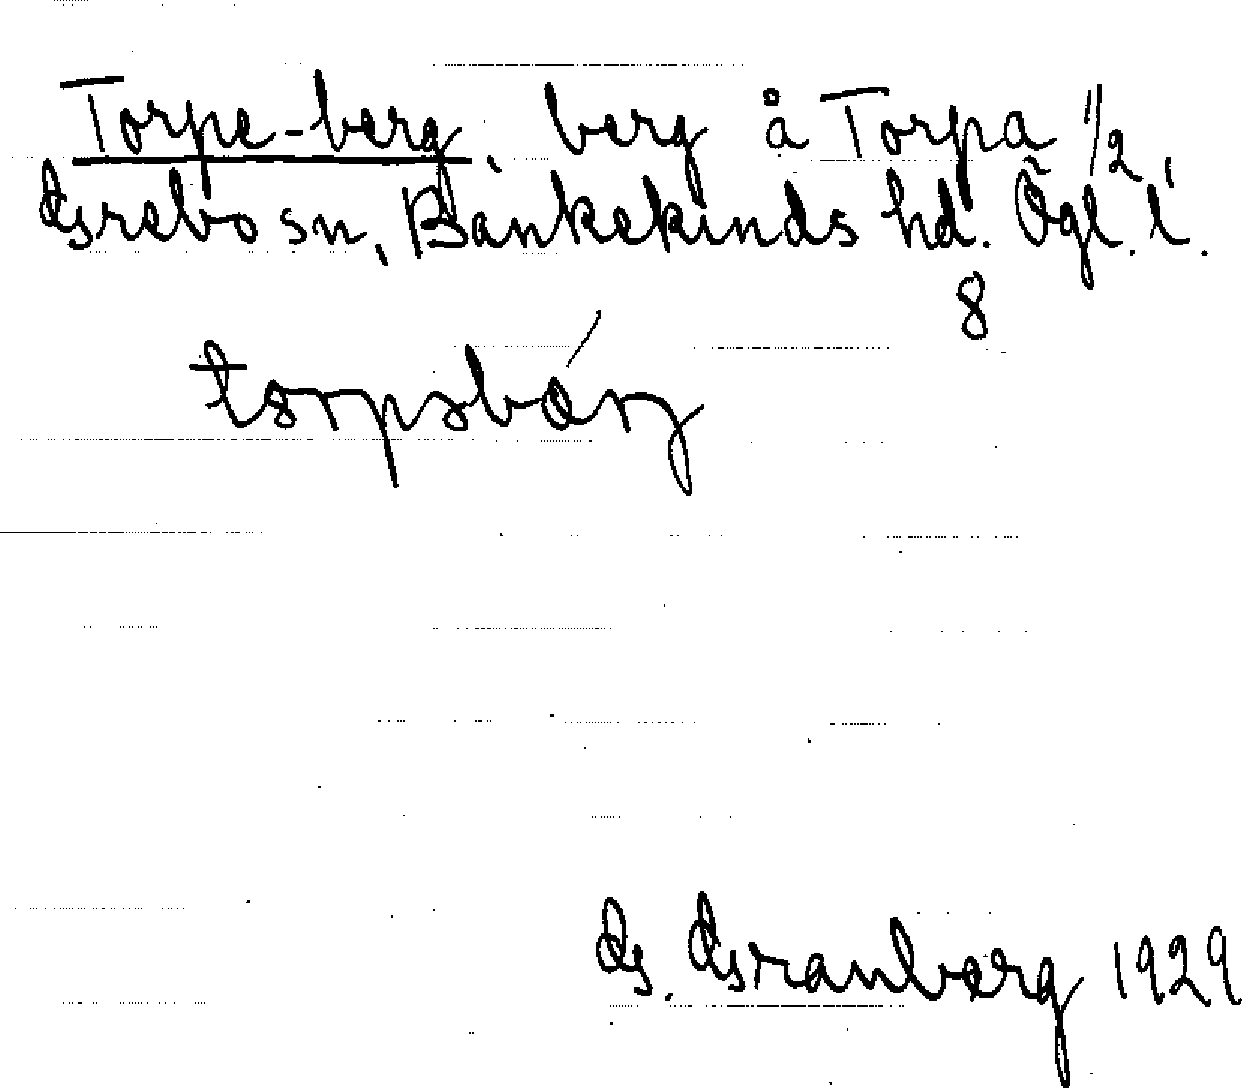 Torpe-berg, berg å Torpa 1/2
Grebo sn, Bankekinds hd. Ögl. l.
8
torpəbárg
G. Granberg 1929